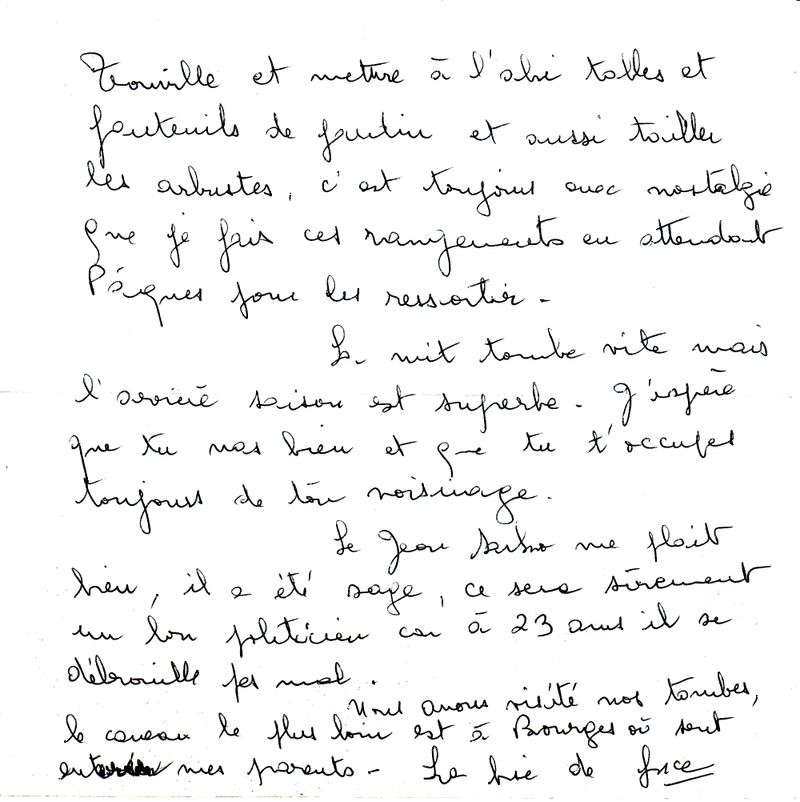 Trouville et mettre à l'abri tables et
fauteuils de jardin et aussi tailler
les arbustes, c'est toujours avec nostalgie
que je fais ces rangements en attendant
Pâques pour les ressortir -
La nuit tombe vite mais
l'arrière saison est superbe. J'espère
que tu vas bien et que tu t'occupes
toujours de ton voisinage.
Le Jean me plait
bien, il a été sage, ce sera sûrement
un bon politicien car à 23 ans il se
débrouille pas mal.
Nous avons visité nos tombes,
le caveau le plus loin est à Bourges où sont
mes parents - La de